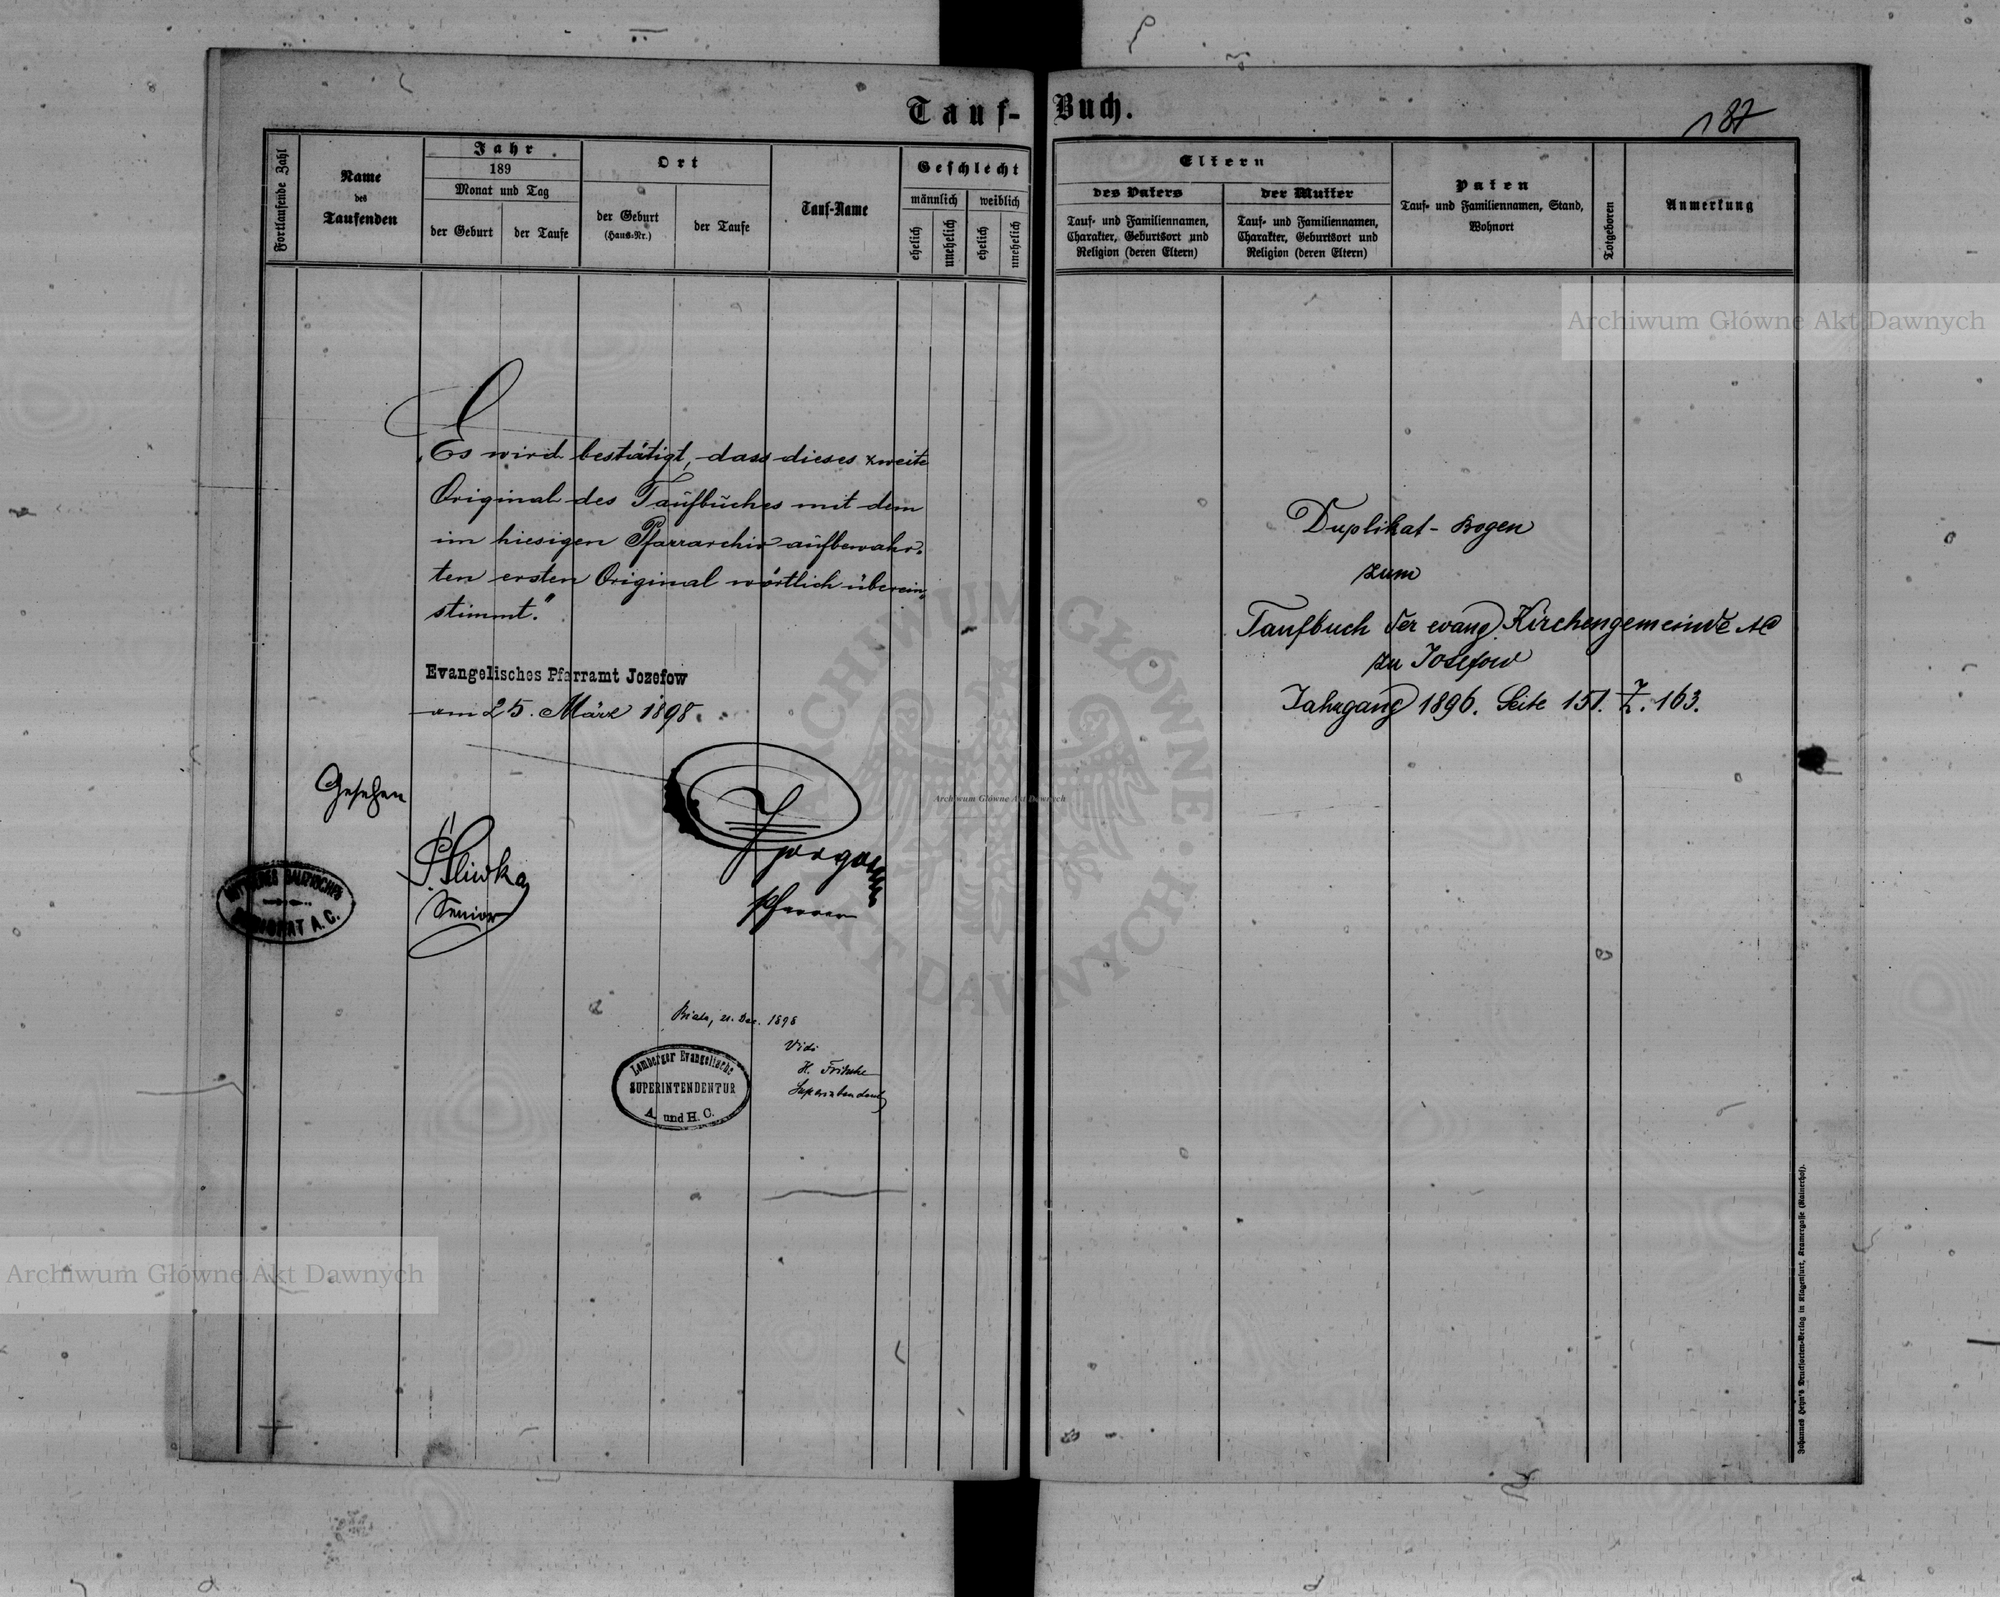 Tauf-Buch.
187
Fortlaufende Zahl
Name
des
Taufenden
Jahr
189
Monat und Tag
der Geburt
der Taufe
Ort
der Geburt
(Haus-Nr.)
der Taufe
Tauf-Name
Geschlecht
männlich
weiblich
ehelich
unehelich
ehelich
unehelich
Eltern
des Vaters
Tauf- und Familiennamen,
Charakter, Geburtsort und
Religion (deren Eltern)
der Mutter
Tauf- und Familiennamen,
Charakter, Geburtsort und
Religion (deren Eltern)
Paten
Tauf- und Familiennamen, Stand,
Wohnort
Totgeboren
Anmerkung
„Es wird bestätigt, dass dieses zweite
Original des Taufbuches mit dem
im hiesigen Pfarrarchiv aufbewahr-
ten ersten Original wörtlich überein-
stimmt."
Evangelisches Pfarramt Jozefow
am 25. März 1898.
Gesehen
Sliwka
Senior
GALIZISCHES
SENIORAT A. C.
Pfarrer
Biala, 21. Dez. 1898
Vidi
H. Fritsche
Superintendent
Lemberger Evangelische
SUPERINTENDENTUR
A. und H. C.
Duplikat-Bogen
zum
Taufbuch der evang. Kirchengemeinde AC
zu Josefow
Jahrgang 1896. Seite 151. Z. 163.
Johannes Heyn's Drucksorten-Verlag in Klagenfurt, Kramergasse (Rainerhof).
Archiwum Główne Akt Dawnych
Archiwum Główne Akt Dawnych
Archiwum Główne Akt Dawnych
ARCHIWUM GŁÓWNE • AKT DAWNYCH •